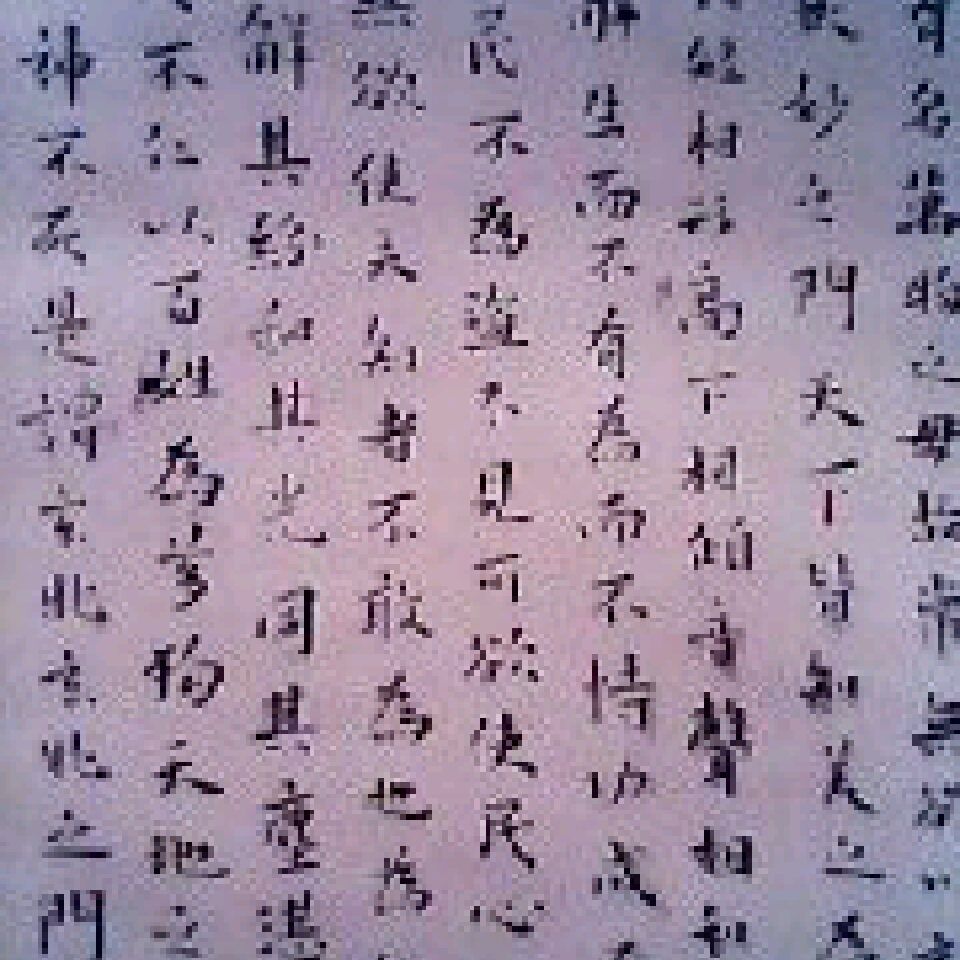 有名萬物之母故常無欲以
妙之門天下皆知美之為
相形高下相傾音聲相和
生而不有為而不恃功成
民不為盜不見可欲使民心
欲使夫知者不敢為也為
解其紛和其光同其塵湛
不仁以百姓為芻狗天地之
神不死是謂玄牝玄牝之門